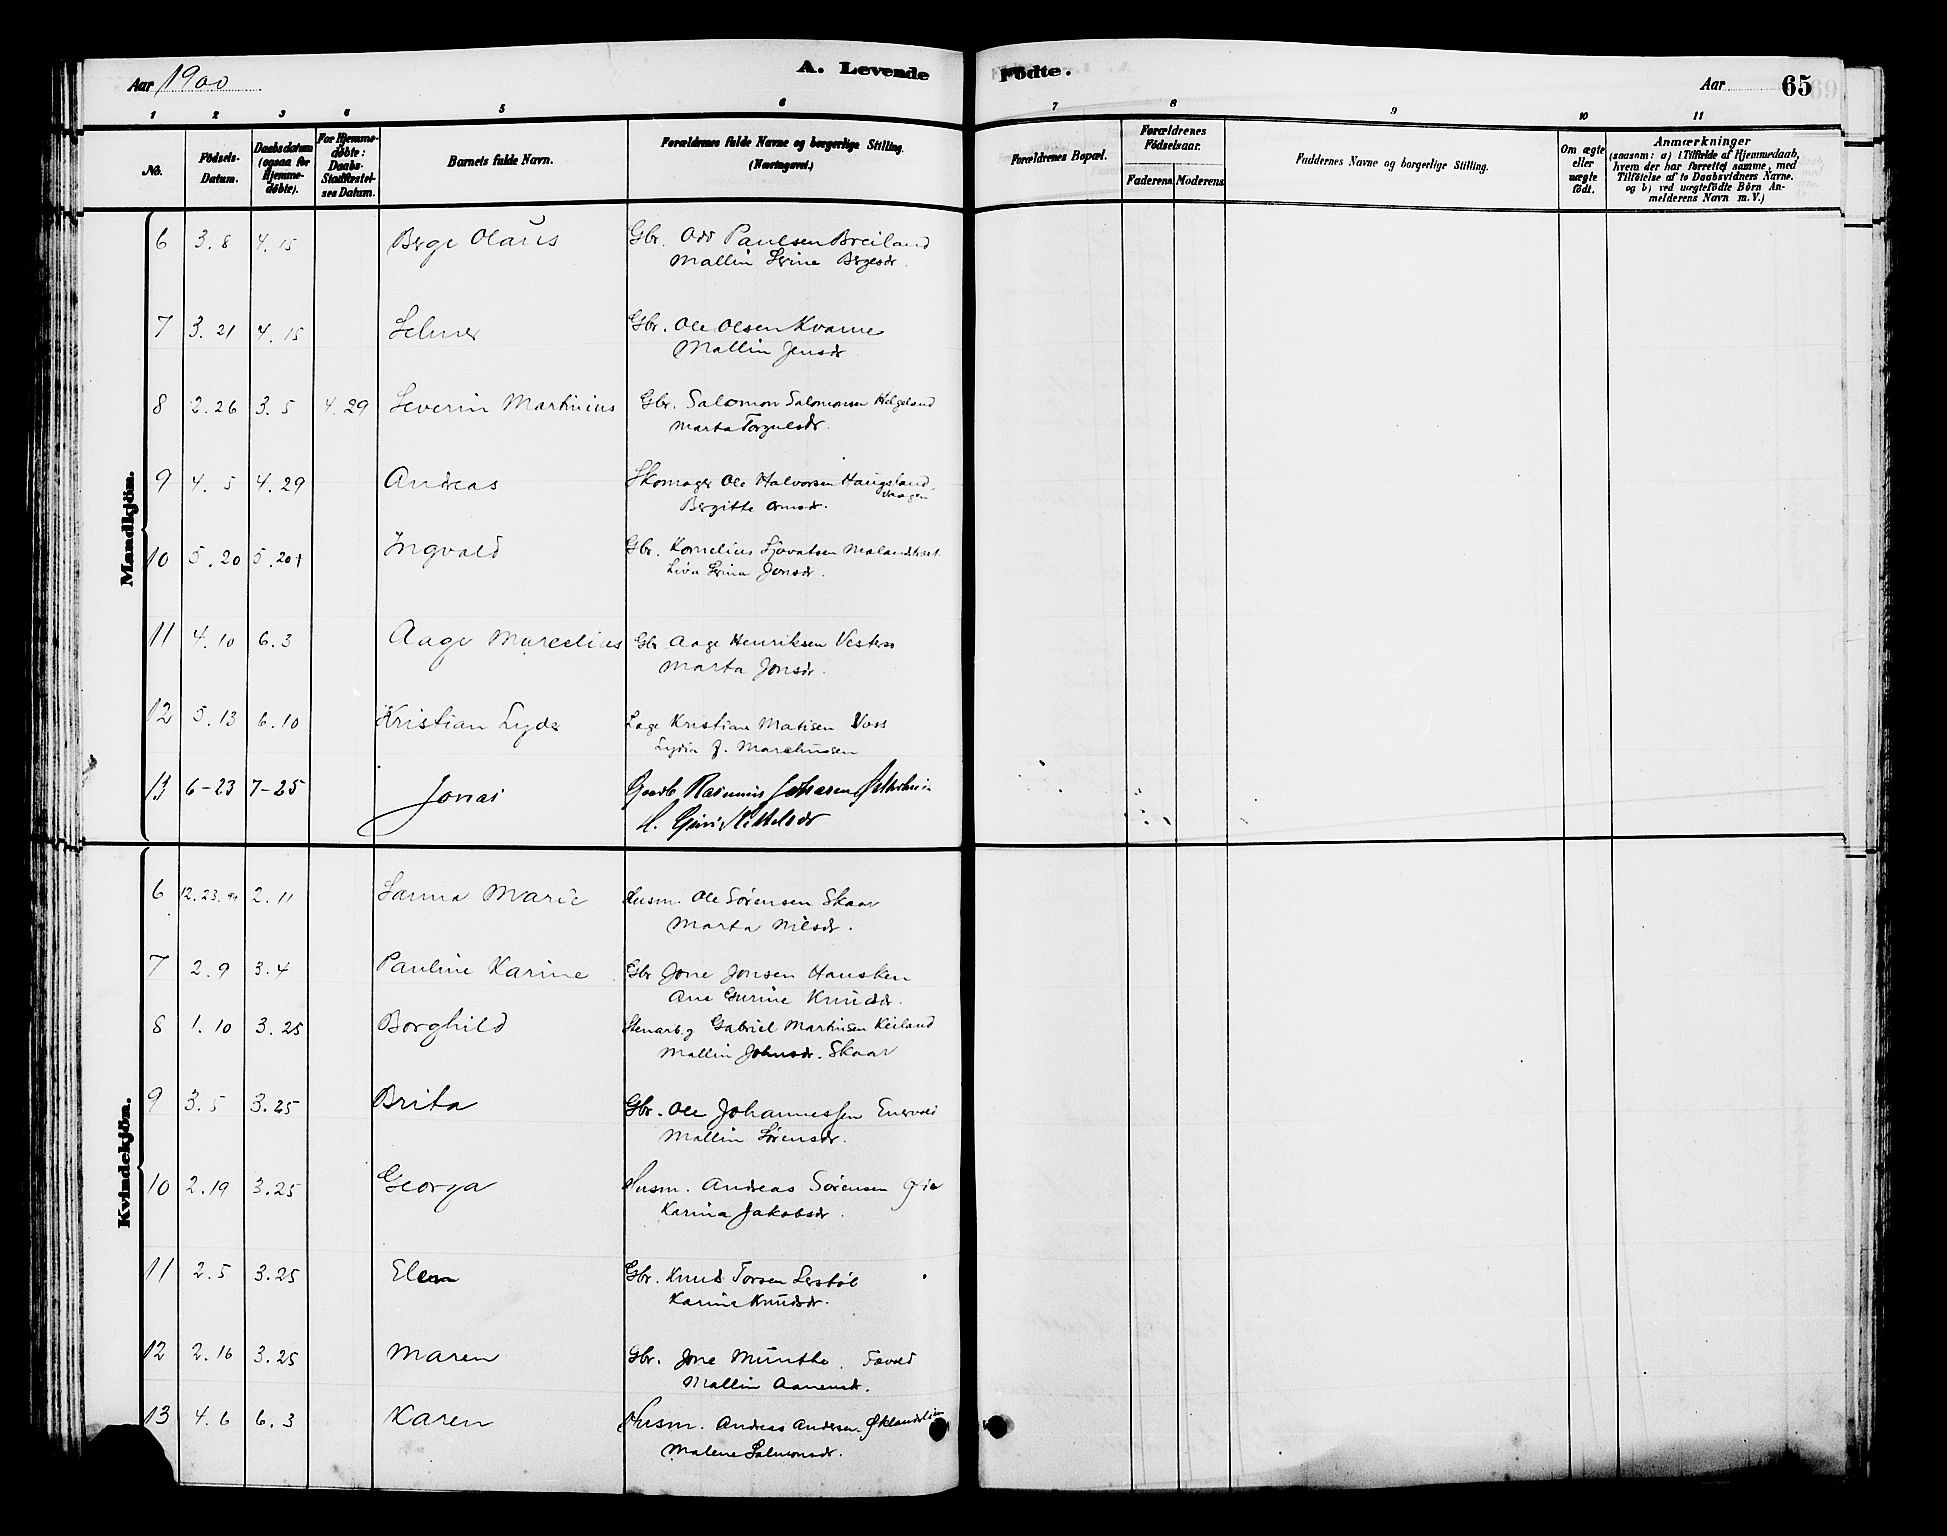 Aar 1900
A. Levende
Fødte.
Aar
65
1 2 3 4 5 6 7 8 9 10 11
No.
Fødsels-Datum.
Daabsdatum (ogsaa for Hjemme-døbte).
For Hjemme-døbte: Daabs-Stadfæstel-ses Datum.
Barnets fulde Navn.
Forældrenes fulde Navne og borgerlige Stilling. (Næringsvei.)
Forældrenes Bopæl.
Forældrenes Fødselsaar.
Faderens. Moderens.
Faddernes Navne og borgerlige Stilling.
Om ægte eller uægte født.
Anmærkninger
(saasom: a) i Tilfælde af Hjemmedaab, hvem der har forrettet samme, med Tilføielse af to Daabsvidners Navne. og b) ved uægtefødte Børn An-melderens Navn m. V.)
Mandkjøn.
6 3.8 4.15 Berge Olaus Gbr. Odd Paulsen Breiland
Mallin Serine Bergesdr.
7 3.21 4.15 Selmer Gbr. Ole Olsen Kvame
Mallin Jensdr.
8 2.26 3.5 4.29 Severin Martinius Gbr. Salomon Salomonsen Helgeland
Marta Torgulsdr.
9 4.5 4.29 Andreas Skomager Ole Halvorsen Haugsland
vaagen
Bergitte Ormsdr.
10 5.20 5.20+ Ingvald Gbr. Kornelius Sjovatsen
Liva Serina Jonsdr.
11 4.10 6.3 Aage Marcelius Gbr Aage Henriksen
Marta Jonsdr.
12 5.13 6.10 Kristian Lyder Kristian Matisen Voss
Lydia J. Marchussen
13 6-23 7-25 Jonas Gaardb Rasmus
H. Guri Kittelsdr
Kvindekjøn.
6 12.23.99 2.11 Sanna Marie Husm. Ole Sørensen Skaar
Marta Nilsdr.
7 2.9 3.4 Pauline Karine Gbr Jone Jonsen Hausken
Ane Gurine Knudsdr.
8 1.10 3.25 Borghild Stenarb. Gabriel Martinsen Keiland
Mallin Johnsdr. Skaar
9 3.5 3.25 Brita Gbr. Ole Johannessen
Mallin Sørensdr.
10 2.19 3.25 Georga Husm. Andreas Sørensen
Karina Jakobsdr.
11 2.5 3.25 Elen Gbr. Knud Torsen Lestøl
Karina Knudsdr.
12 2.16 3.25 Maren Gbr. Jone Munthe.
Mallin Aanensdr.
13 4.6 6.3 Karen Husm. Andreas Andersen
Malene Salmonsdr.